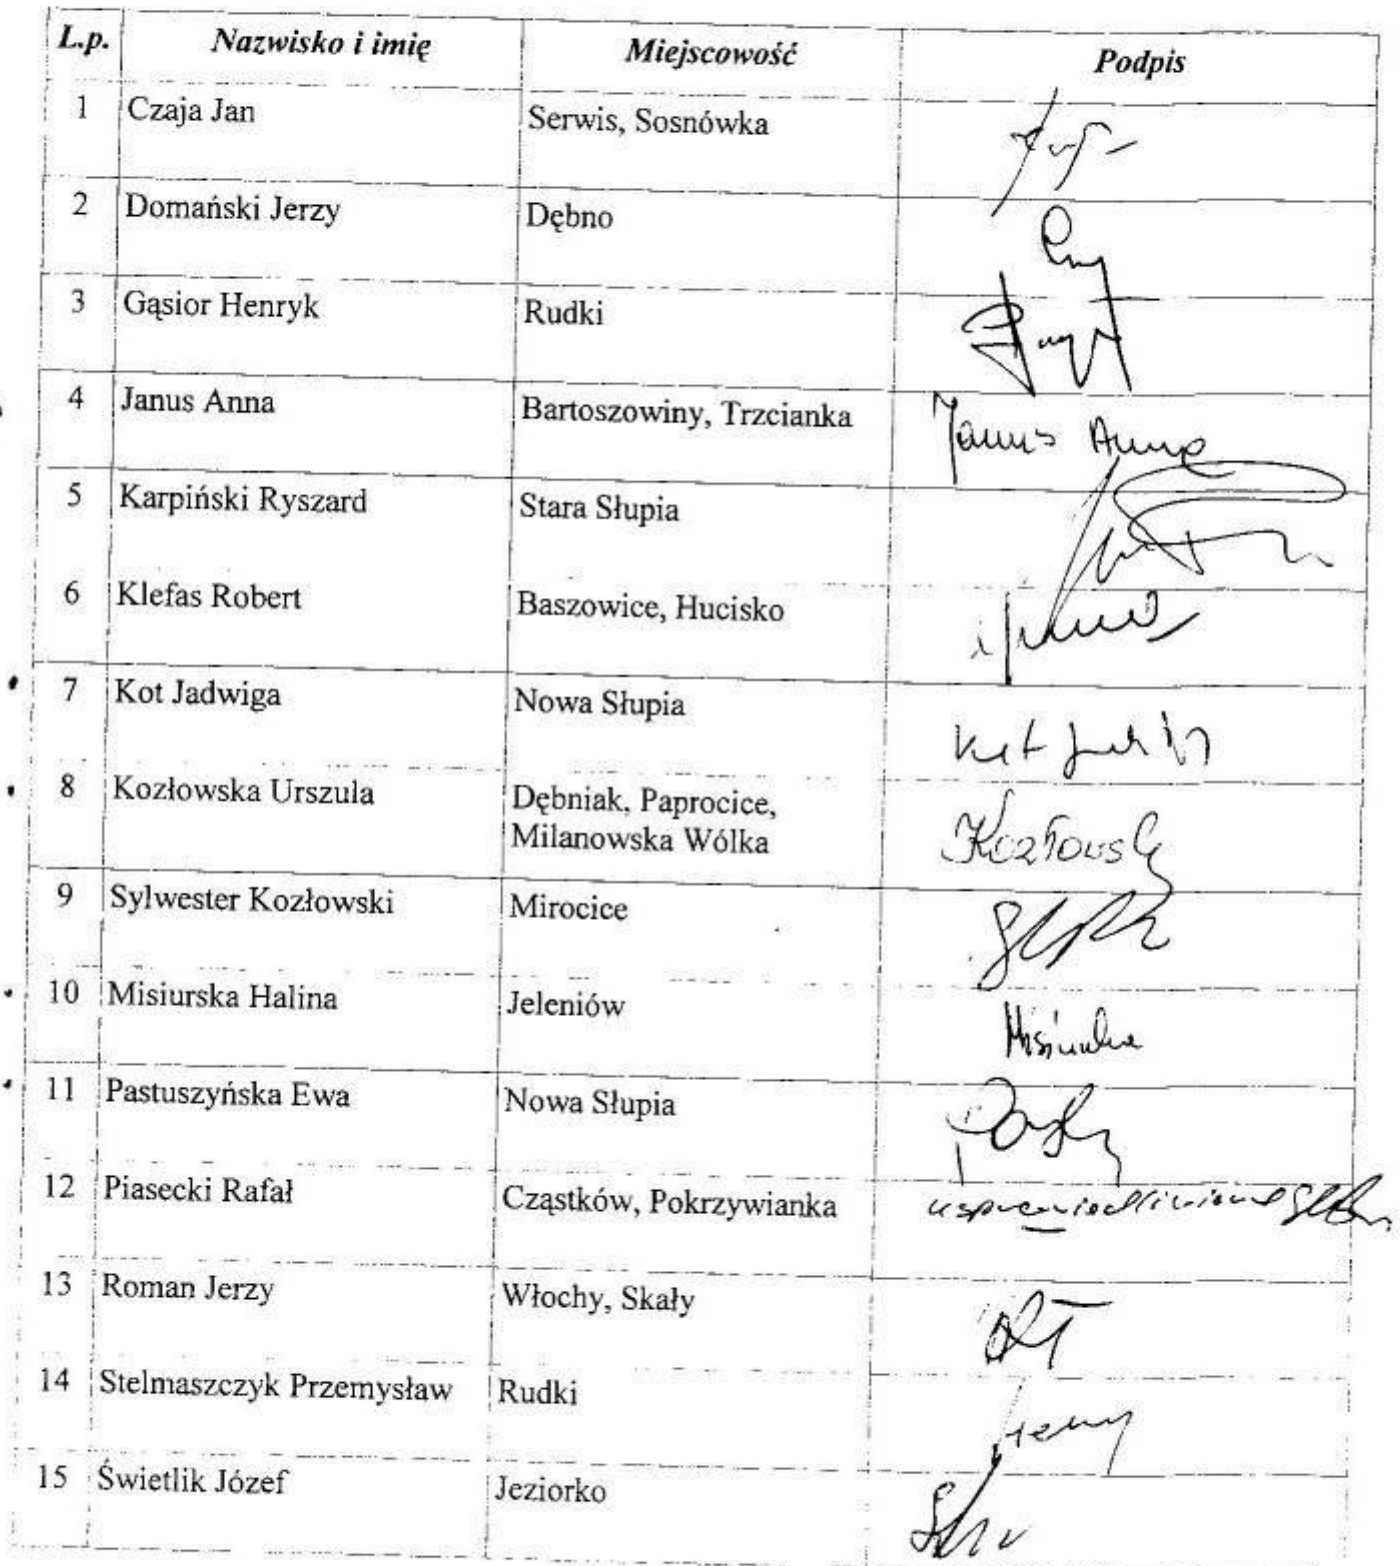 L.p. Nazwisko i imię Miejscowość Podpis
1 Czaja Jan Serwis, Sosnówka
2 Domański Jerzy Dębno
3 Gąsior Henryk Rudki
4 Janus Anna Bartoszowiny, Trzcianka Janus Anna
5 Karpiński Ryszard Stara Słupia
6 Klefas Robert Baszowice, Hucisko
7 Kot Jadwiga Nowa Słupia Kot
8 Kozłowska Urszula Dębniak, Paprocice,
Milanowska Wólka
9 Sylwester Kozłowski Mirocice
10 Misiurska Halina Jeleniów
11 Pastuszyńska Ewa Nowa Słupia
12 Piasecki Rafał Cząstków, Pokrzywianka
13 Roman Jerzy Włochy, Skały
14 Stelmaszczyk Przemysław Rudki
15 Świetlik Józef Jeziorko